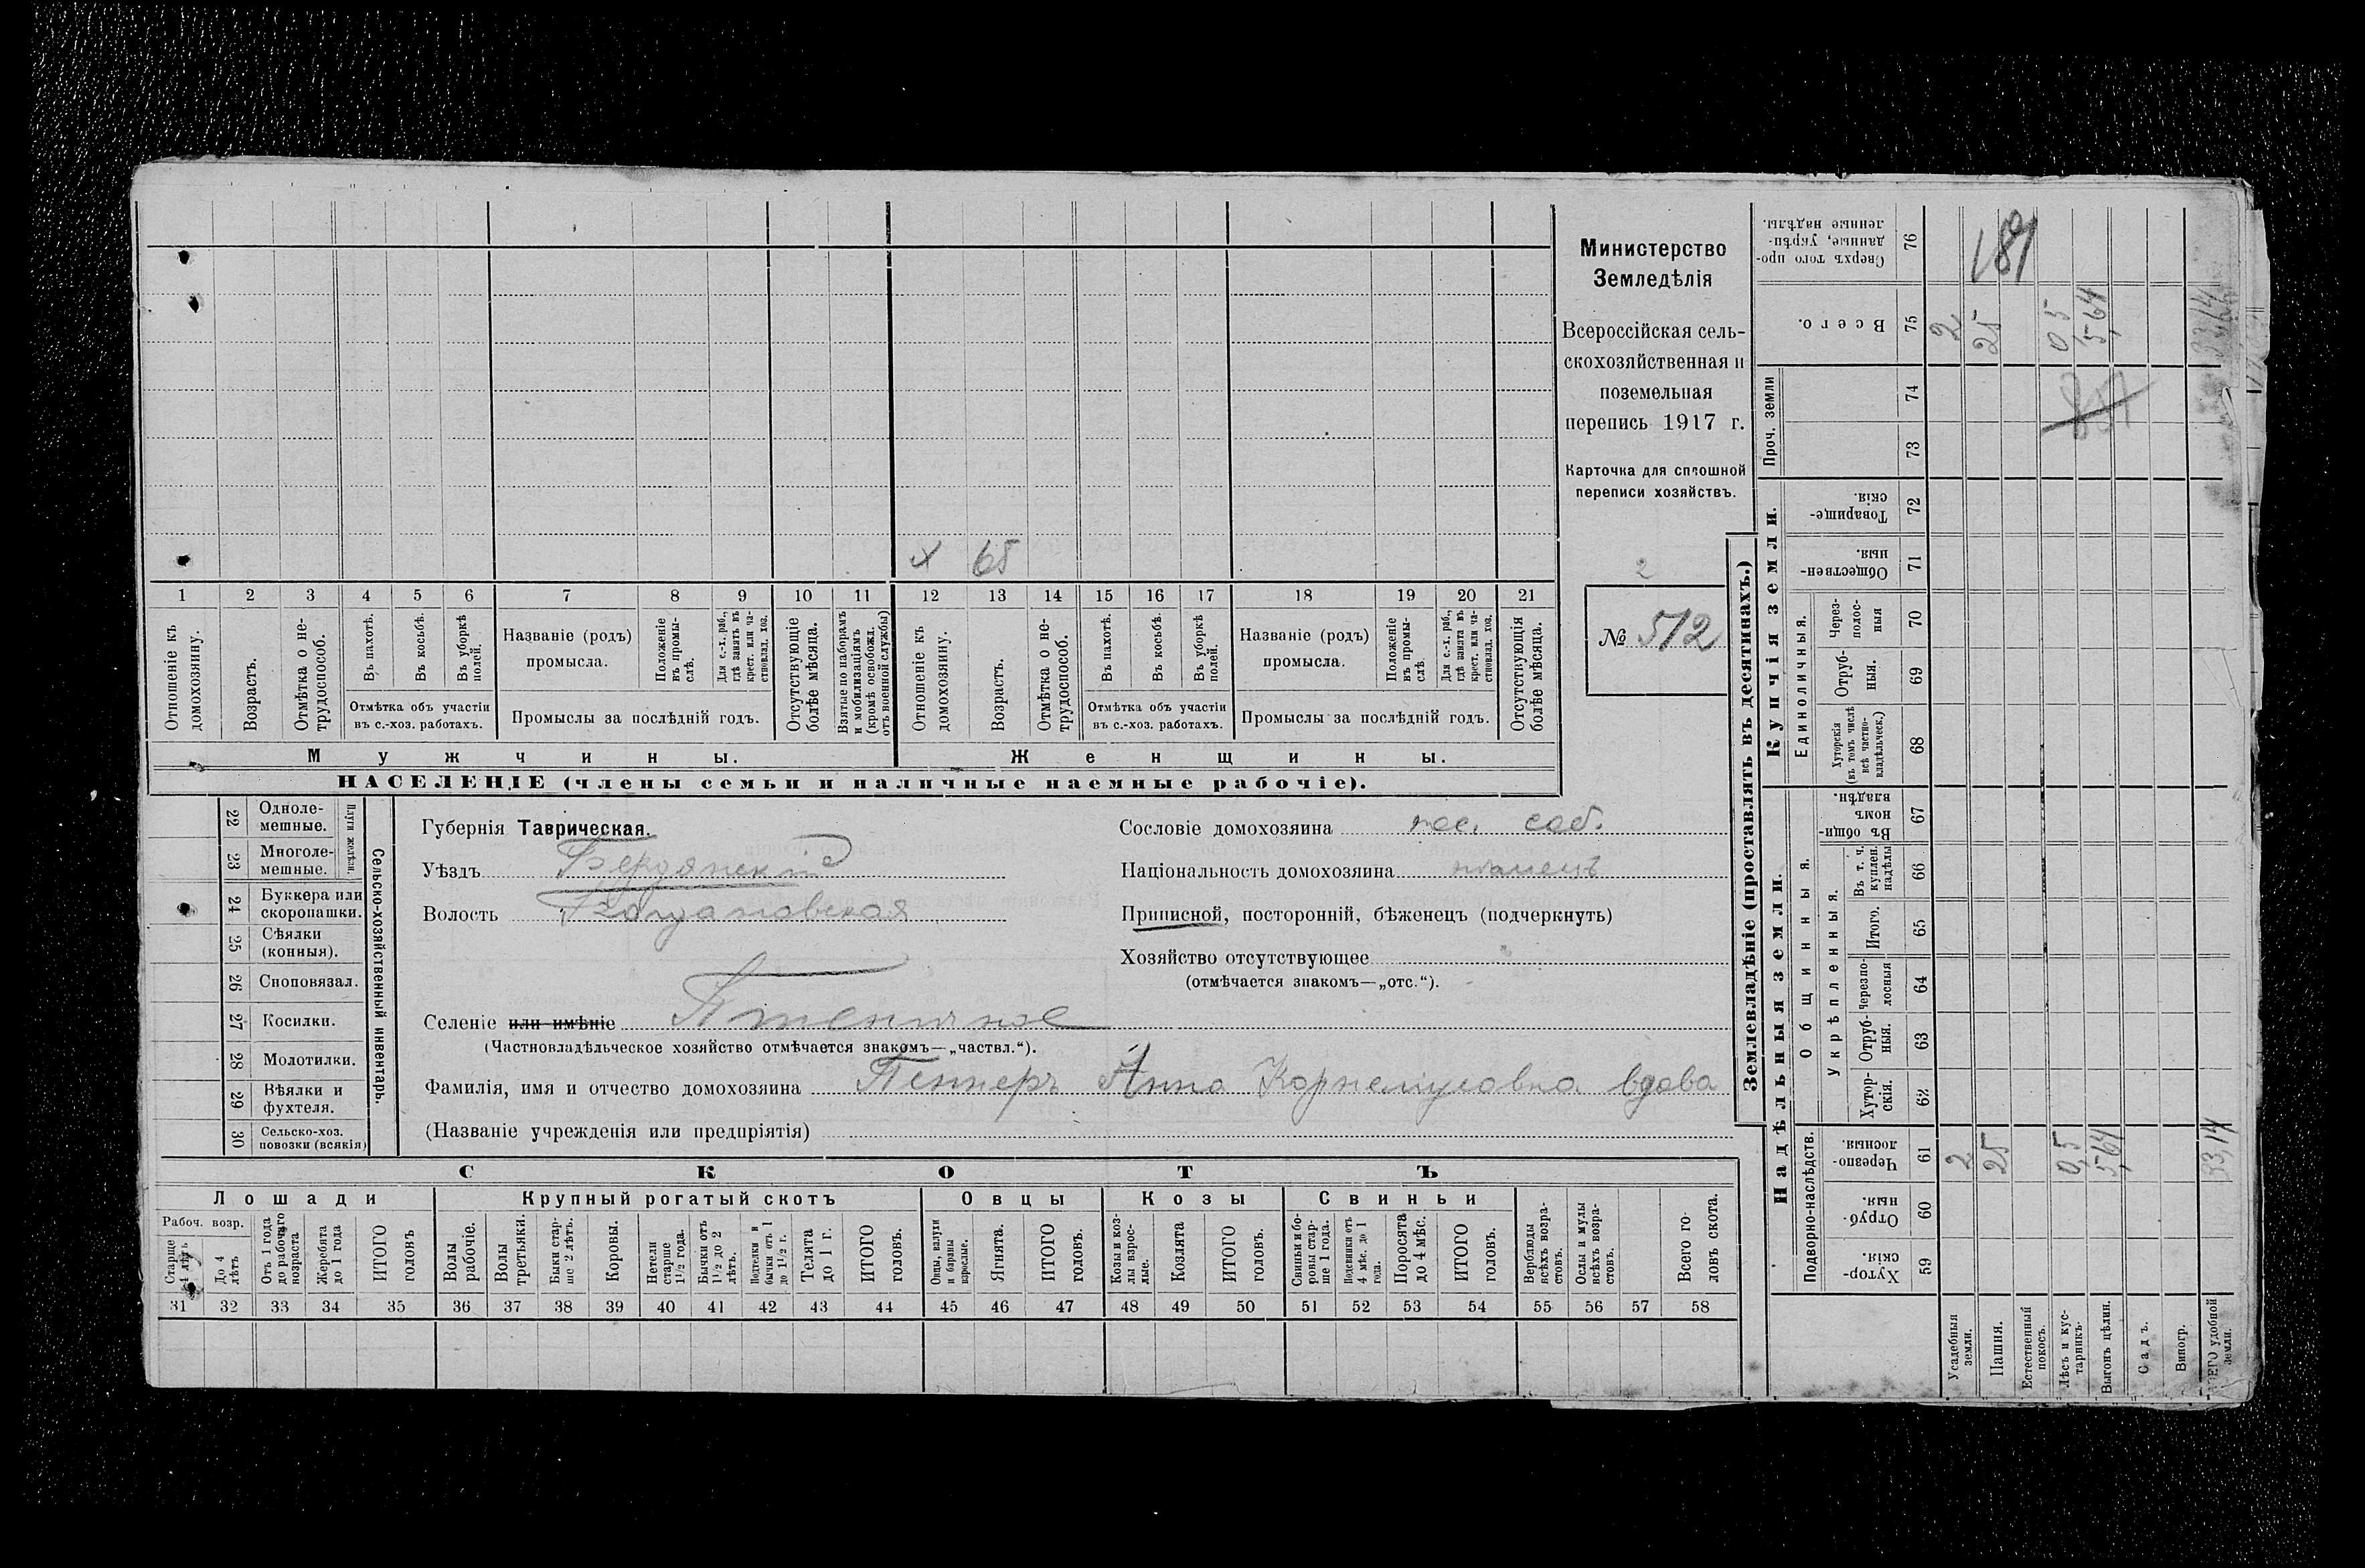 Министерство
Земледѣлія
Всероссійская сель-
скохозяйственная и
поземельная
перепись 1917 г.
Карточка для сплошной
переписи хозяйствъ.
2
№ 512
х 65
1 2 3 4 5 6 7 8 9 10 11 12 13 14 15 16 17 18 19 20 21
Отношеніе къ домохозяину.
Возрастъ.
Отмѣтка о не-трудоспособ.
Въ пахотѣ.
Въ косьбѣ.
Въ уборкѣ полей.
Отмѣтка объ участіи
въ с.-хоз. работахъ.
Названіе (родъ)
промысла.
Положеніе въ промы-слѣ.
Для с.-х. раб., гдѣ занятъ въ крест. или ча-стновлад. хоз.
Промыслы за послѣдній годъ.
Отсутствующіе болѣе мѣсяца.
Взятые по наборамъ и мобилизаціямъ (кромѣ освобожд. отъ военной службы)
Отношеніе къ домохозяину.
Возрастъ.
Отмѣтка о не-трудоспособ.
Въ пахотѣ.
Въ косьбѣ.
Въ уборкѣ полей.
Отмѣтка объ участіи
въ с.-хоз. работахъ.
Названіе (родъ)
промысла.
Положеніе въ промы-слѣ.
Для с.-х. раб., гдѣ занята въ крест. или ча-стновлад. хоз.
Промыслы за послѣдній годъ.
Отсутствующія болѣе мѣсяца.
Мужчины.
Женщины.
НАСЕЛЕНІЕ (члены семьи и наличные наемные рабочіе).
22 Одноле-мешные.
23 Многоле-мешные.
Плуги желѣзн.
24 Буккера или скоропашки.
25 Сѣялки (конныя).
26 Сноповязал.
27 Косилки.
28 Молотилки.
29 Вѣялки и фухтеля.
30 Сельско-хоз. повозки (всякія)
Сельско-хозяйственный инвентарь.
Губернія Таврическая.
Уѣздъ Бердянскій
Волость
Селеніе или имѣніе Пшеничное
(Частновладѣльческое хозяйство отмѣчается знакомъ—„частвл.“).
Фамилія, имя и отчество домохозяина Пеннеръ Анна Корнелиусовна вдова
(Названіе учрежденія или предпріятія)
Сословіе домохозяина пос. соб.
Національность домохозяина нѣмецъ
Приписной, посторонній, бѣженецъ (подчеркнуть)
Хозяйство отсутствующее
(отмѣчается знакомъ—„отс.“).
СКОТЪ
Лошади
Крупный рогатый скотъ
Овцы
Козы
Свиньи
Рабоч. возр.
Старше 4 лѣтъ.
До 4 лѣтъ
Отъ 1 года до рабочаго возраста
Жеребята до 1 года
ИТОГО головъ
Волы рабочіе.
Волы третьяки.
Быки стар-ше 2 лѣтъ.
Коровы.
Нетели старше 1½ года.
Бычки отъ 1½ до 2 лѣтъ.
Подтелки и бычки отъ 1 до 1½ г.
Телята до 1 г.
ИТОГО головъ.
Овцы, валухи и бараны взрослые.
Ягнята.
ИТОГО головъ.
Козы и коз-лы взрос-лые.
Козлята
ИТОГО головъ.
Свиньи и бо-ровы стар-ше 1 года.
Подсвинки отъ 4 мѣс. до 1 года.
Поросята до 4 мѣс.
ИТОГО головъ.
Верблюды всѣхъ возра-стовъ.
Ослы и мулы всѣхъ возра-стовъ.
Всего го-ловъ скота.
31 32 33 34 35 36 37 38 39 40 41 42 43 44 45 46 47 48 49 50 51 52 53 54 55 56 57 58
Землевладѣніе (проставлять въ десятинахъ.)
Надѣльныя земли.
Купчія земли.
Проч. земли
Подворно-наслѣдств.
Общинныя.
Укрѣпленныя.
Единоличныя.
Хутор-скія. 59
Отруб-ныя. 60
Черезпо-лосныя. 61
Хутор-скія. 62
Отруб-ныя. 63
Черезпо-лосныя 64
Итого. 65
Въ т. ч. куплен. надѣлы 66
Въ общин-номъ владѣн. 67
Хуторскія (въ томъ числѣ всѣ частно-владѣльческ.) 68
Отруб-ныя. 69
Через-полос-ныя 70
Обществен-ныя. 71
Товарище-скія. 72
73
74
Всего. 75
Сверхъ того про-данные, укрѣп-ленные надѣлы. 76
Усадебныя земли. 2 2
Пашня. 25 25
Естественный покосъ.
Лѣсъ и кус-тарникъ. 0,5 0,5
Выгонъ цѣлин. 5,64 5,64
Садъ.
Виногр.
ВСЕГО удобной земли. 33,14 33,14
189
857